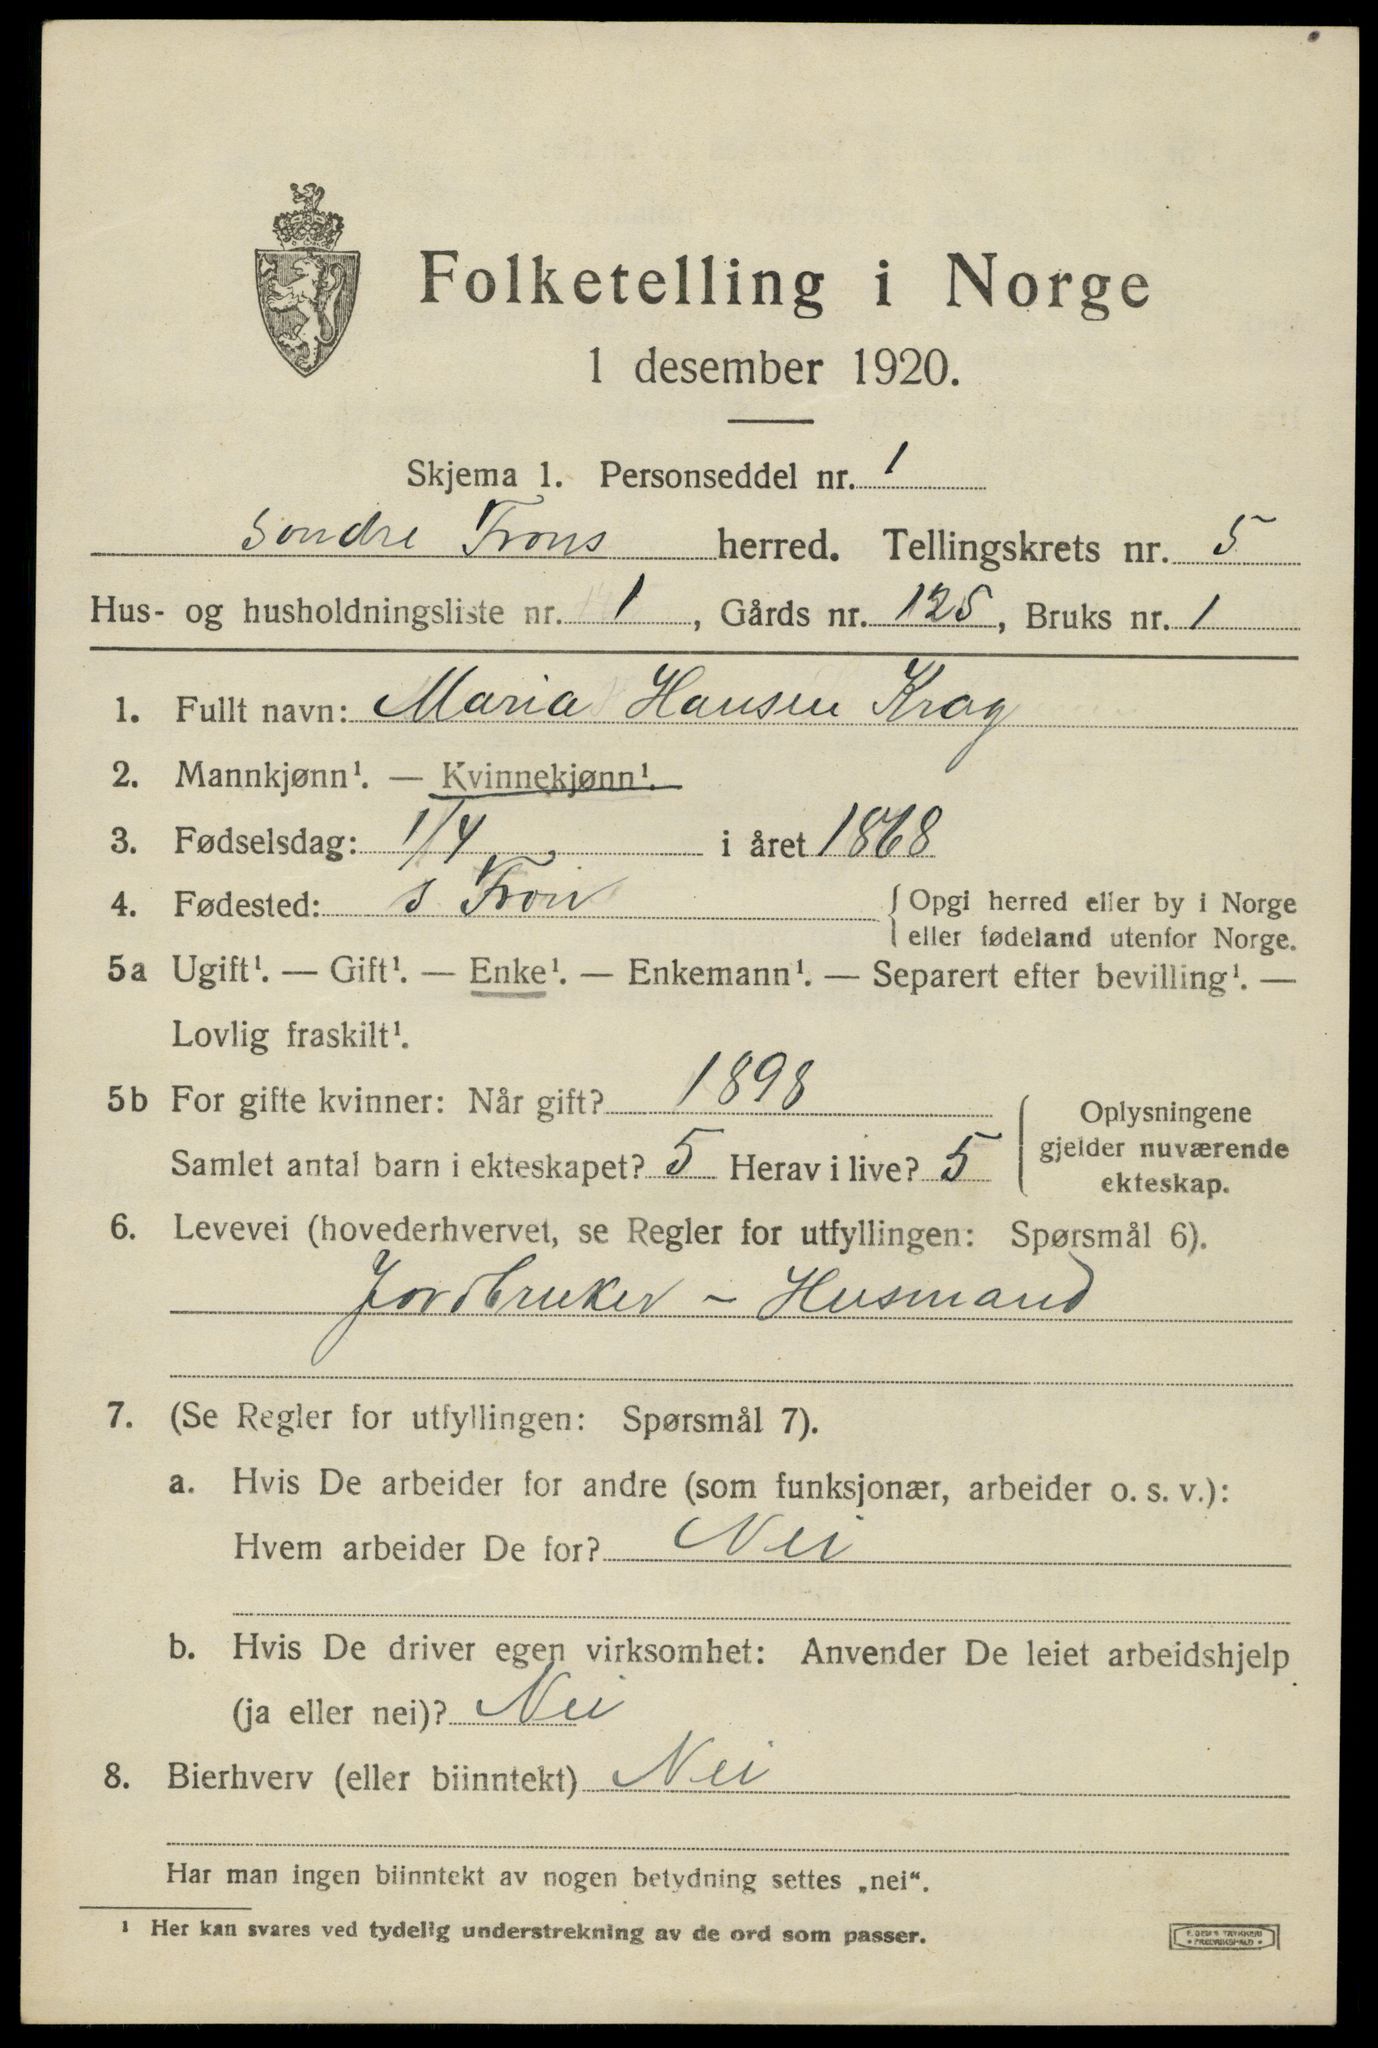 Folketelling i Norge
1 desember 1920.
Skjema 1. Personseddel nr. 1
Søndre Frons herred. Tellingskrets nr. 5
Hus- og husholdningsliste nr. 1, Gårds nr. 125, Bruks nr. 1
1. Fullt navn: Maria Hansen Krag
2. Mannkjønn¹. — Kvinnekjønn¹.
3. Fødselsdag: 1/4 i året 1868
4. Fødested: S. Fron {Opgi herred eller by i Norge
eller fødeland utenfor Norge.
5a Ugift¹. — Gift¹. — Enke¹. — Enkemann¹. — Separert efter bevilling¹. —
Lovlig fraskilt¹.
5b For gifte kvinner: Når gift? 1898
Samlet antal barn i ekteskapet? 5 Herav i live? 5
Oplysningene
gjelder nuværende
ekteskap.
6. Levevei (hovederhvervet, se Regler for utfyllingen: Spørsmål 6).
Jordbruker - Husmand
7. (Se Regler for utfyllingen: Spørsmål 7).
a. Hvis De arbeider for andre (som funksjonær, arbeider o. s. v.):
Hvem arbeider De for? Nei
b. Hvis De driver egen virksomhet: Anvender De leiet arbeidshjelp
(ja eller nei)? Nei
8. Bierhverv (eller biinntekt) Nei
Har man ingen biinntekt av nogen betydning settes „nei“.
¹ Her kan svares ved tydelig understrekning av de ord som passer.
TRYKKERI
• FREDRIKSHALD •